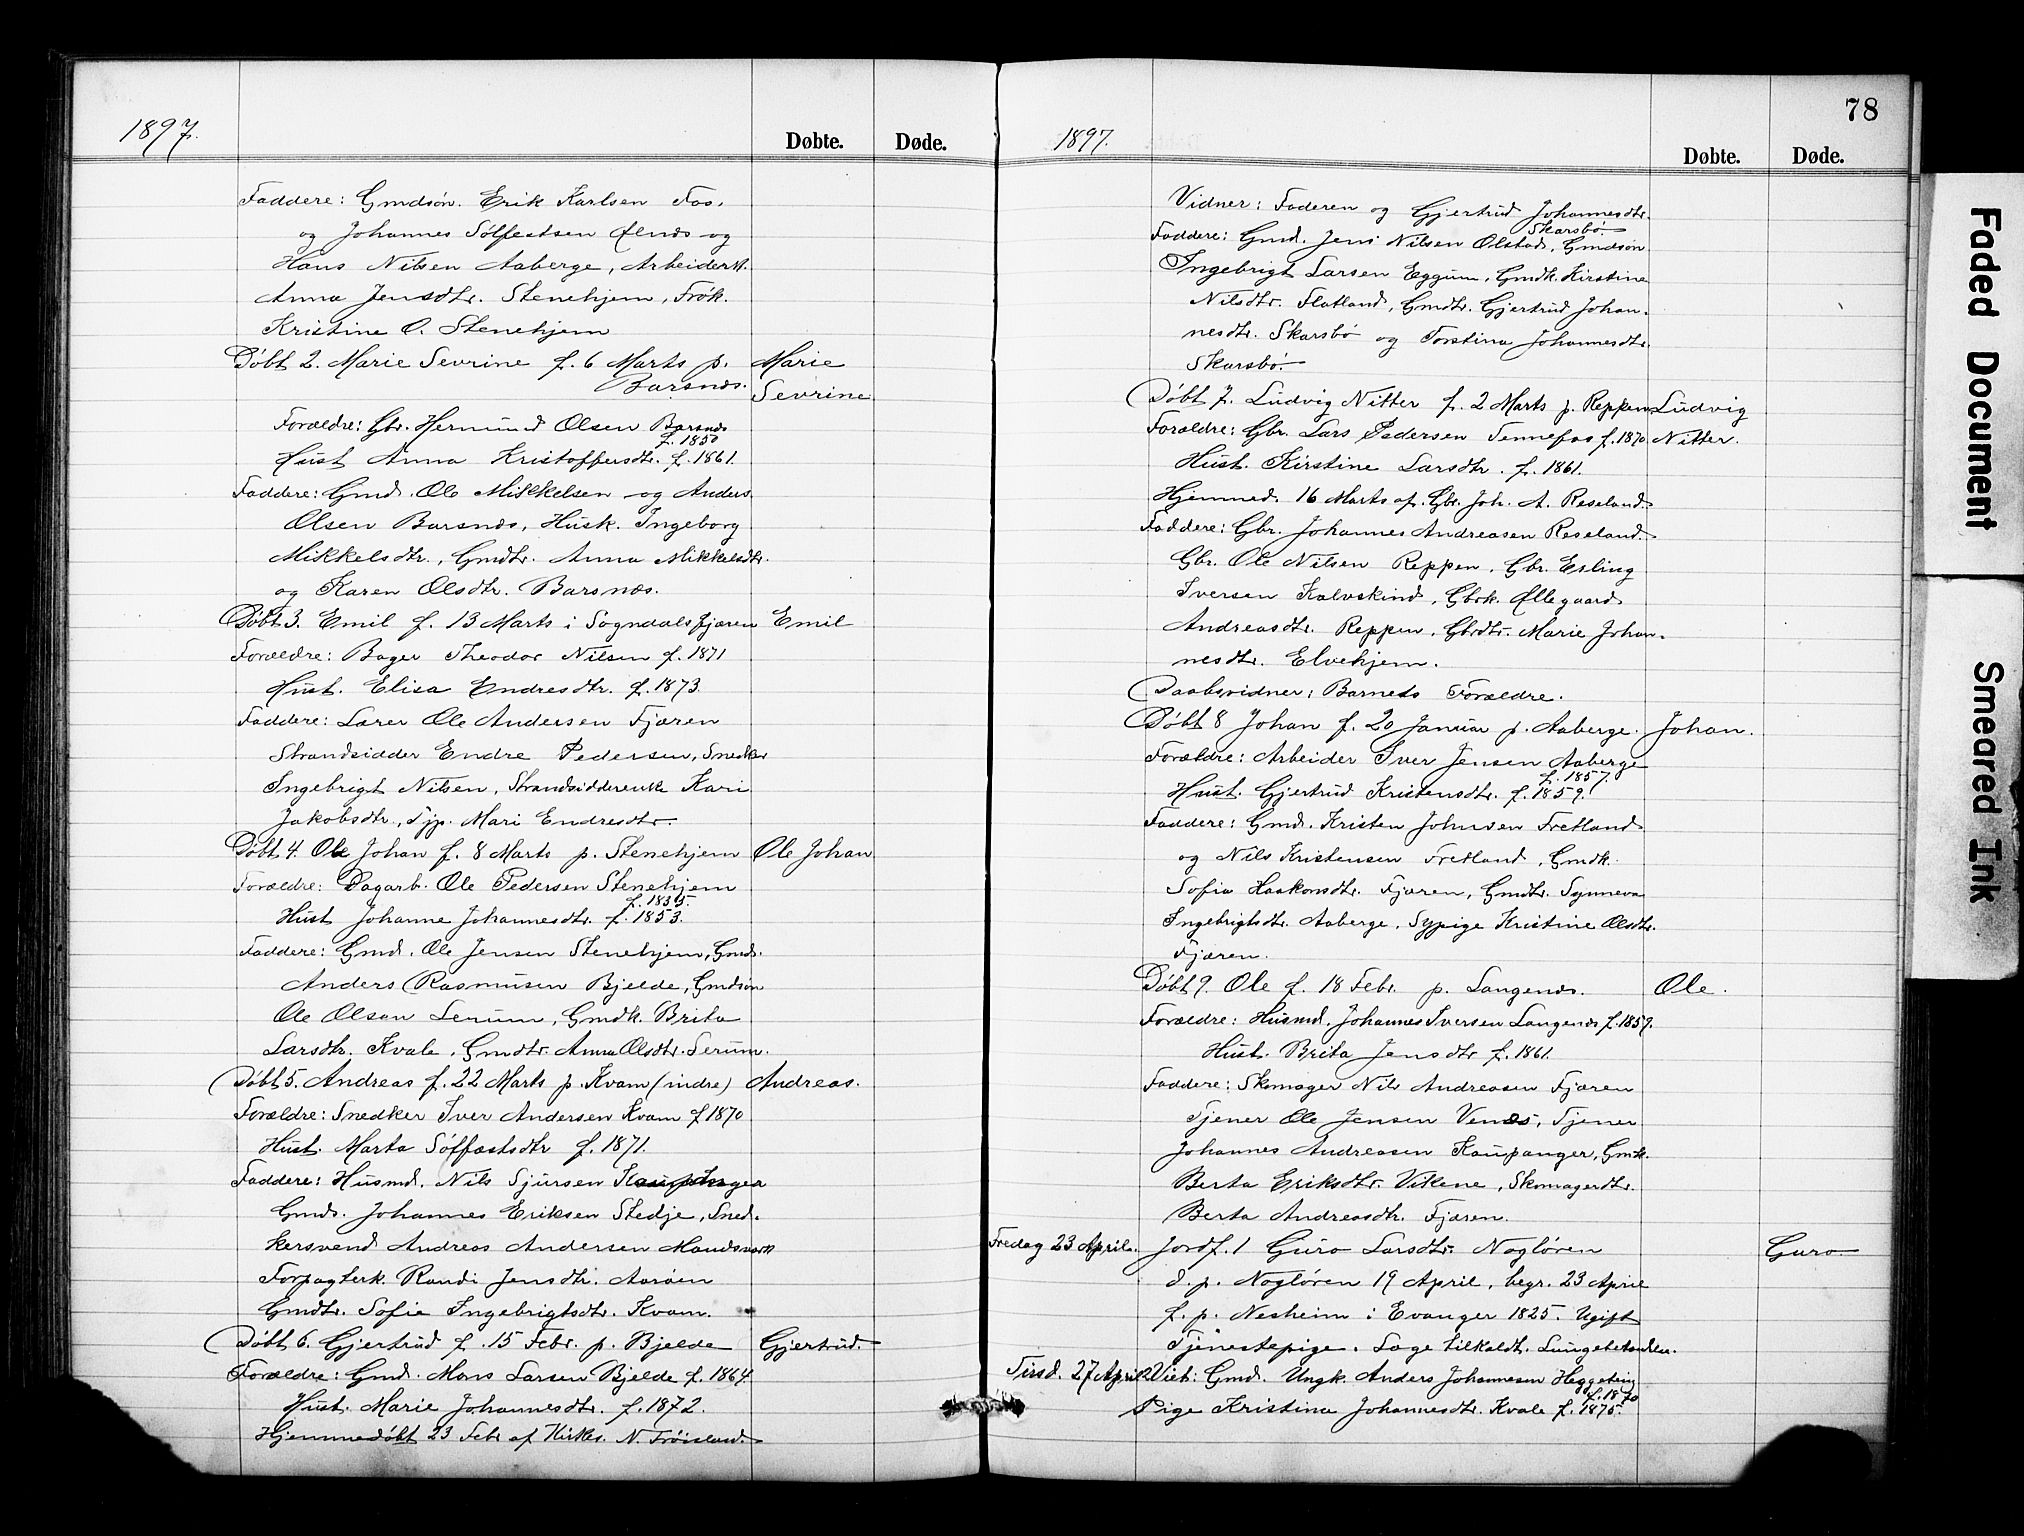 1897.
Døbte. Døde.
Faddere: Gmdsøn. Erik Karlsen Fos,
og Johannes Sølfestsen Ølnæs og
Hans Nilsen Aaberge, Arbeiderk.
Anna Jensdtr. Stenehjem, Frøk.
Kristine O. Stenehjem
Døbt 2. Marie Sevrine f. 6 Marts p. Marie
Barsnæs. Sevrine
Forældre: Gbr. Hermund Olsen Barsnæs
f. 1850
Hust Anna Kristoffersdtr. f. 1861.
Faddere: Gmd. Ole Mikkelsen og Anders
Olsen Barsnæs, Husk. Ingeborg
Mikkelsdtr., Gmdtr. Anna Mikkelsdtr.
og Karen Olsdtr. Barsnæs.
Døbt 3. Emil f. 13 Marts i Sogndalsfjæren Emil
Forældre: Bager Theodor Nilsen f. 1871
Hust. Elisa Endresdtr. f. 1873.
Faddere: Lærer Ole Andersen Fjæren
Strandsidder Endre Pedersen, Snedker
Ingebrigt Nilsen, Strandsidderenke Kari
Jakobsdtr., Tjp. Mari Endresdtr.
Døbt 4. Ole Johan f. 8 Marts p. Stenehjem Ole Johan
Forældre: Dagarb. Ole Pedersen Stenehjem
f. 1835.
Hust Johanne Johannesdtr. f. 1853.
Faddere: Gmd. Ole Jensen Stenehjem, Gmd.
Anders Rasmusen Bjelde, Gmdsøn
Ole Olsen Lerum, Gmdk. Brita
Larsdtr. Kvale, Gmdtr. Anna Olsdtr. Lerum.
Døbt 5. Andreas f. 22 Marts p. Kvam (indre) Andreas.
Forældre: Snedker Iver Andersen Kvam f. 1870
Hust. Marta Sølfæstsdtr f. 1871.
Faddere: Husmd. Nils Sjursen Kaupanger
Gmd. Johannes Eriksen Stedje, Sned-
kersvend Andreas Andersen Mundsværk
Forpagterk. Randi Jensdtr. Aarøen
Gmdtr. Sofie Ingebrigtsdtr. Kvam.
Døbt 6. Gjertrud f. 15 Febr. p. Bjelde Gjertrud.
Forældre: Gmd. Mons Larsen Bjelde f. 1864
Hust. Marie Johannesdtr. f. 1872.
Hjemmedøbt 23 Febr af Kirkes. N. Frøisland.
78
1897.
Døbte. Døde.
Vidner: Faderen og Gjertrud Johannesdtr.
Skarsbø.
Faddere: Gmd. Jens Nilsen Olstad, Gmdsøn
Ingebrigt Larsen Eggum, Gmdk. Kirstine
Nilsdtr. Flatland, Gmdtr. Gjertrud Johan-
nesdtr. Skarsbø og Torstina Johannesdtr.
Skarsbø.
Døbt 7. Ludvig Nitter f. 2 Marts p. Reppen Ludvig
Forældre: Gbr. Lars Pedersen Tennefos f. 1870 Nitter.
Hust. Kirstine Larsdtr. f. 1861.
Hjemmed. 16 Marts af Gbr. Joh. A. Reseland.
Faddere: Gbr. Johannes Andreasen Reseland.
Gbr. Ole Nilsen Reppen, Gbr. Erling
Iversen Kalvskind, Gbrk. Øllegaard
Andreasdtr. Reppen, Gbrdtr. Marie Johan-
nesdtr. Elvehjem.
Daabsvidner: Barnets Forældre.
Døbt 8 Johan f. 20 Januar p. Aaberge. Johan.
Forældre: Arbeider Iver Jensen Aaberge
f. 1857.
Hust. Gjertrud Kristensdtr. f. 1859.
Faddere: Gmd. Kristen Johnsen Fretland
og Nils Kristensen Fretland, Gmdk.
Sofia Haakonsdtr. Fjæren, Gmdtr. Synneva
Ingebrigtsdtr. Aaberge, Sypige Kristine Olsdtr.
Fjæren.
Døbt 9. Ole f. 18 Febr. p. Langenæs. Ole.
Forældre: Husmd. Johannes Iversen Langenæs f. 1859.
Hust. Brita Jensdtr f. 1861.
Faddere: Skomager Nils Andreasen Fjæren
Tjener Ole Jensen Venæs, Tjener
Johannes Andreasen Kaupanger, Gmk.
Berta Eriksdtr. Vikene, Skomagerdtr.
Berta Andreasdtr. Fjæren.
Fredag 23 April. Jordf. 1 Guro Larsdtr. Nagløren Guro
d. p. Nagløren 19 April, begr. 23 April
f. p. Nesheim i Evanger 1825. Ugift
Tjenestepige. Læge tilkaldt. Lungebetændelse.
Tirsd. 27 April Viet: Gmd. Ungk. Anders Johannesen Heggeting
f. 1870
Pige Kristina Johannesdtr. Kvale f. 1875.
Faded Document
Smeared Ink